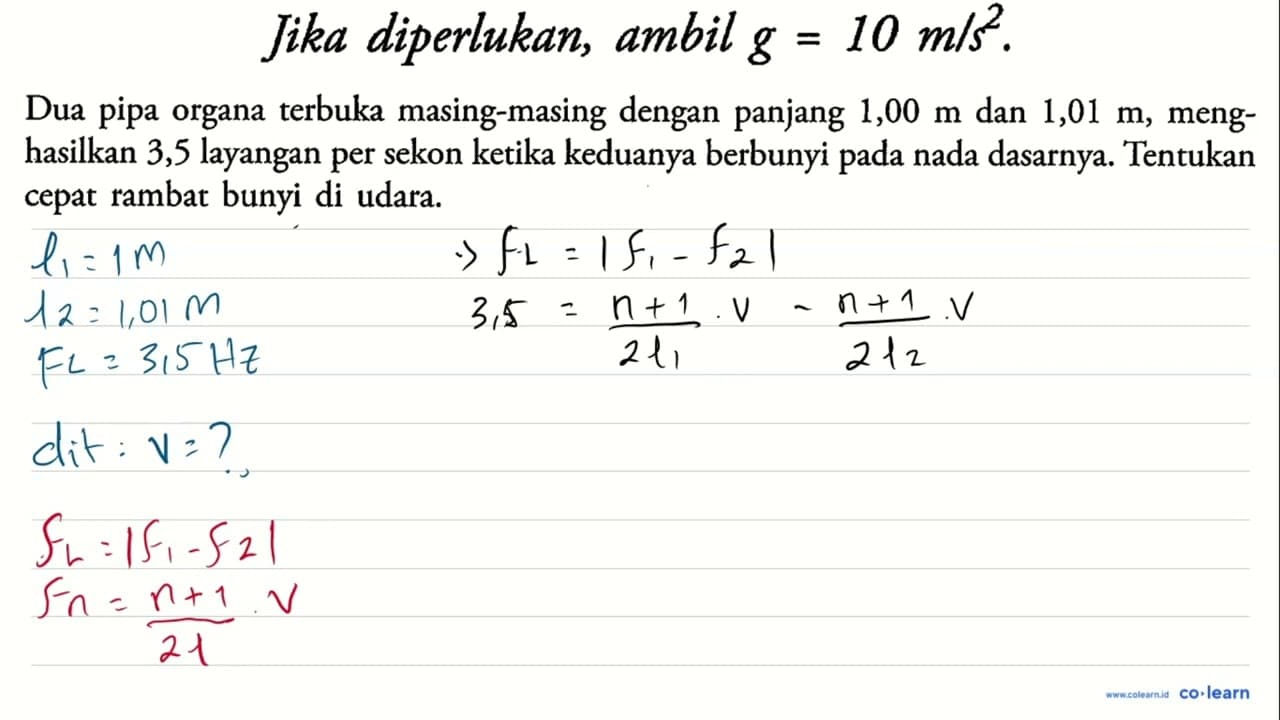 Jika diperlukan, ambil g = 10 m/s².
Dua pipa organa terbuka masing-masing dengan panjang 1,00 m dan 1,01 m, meng-
hasilkan 3,5 layangan per sekon ketika keduanya berbunyi pada nada dasarnya. Tentukan
cepat rambat bunyi di udara.
l₁ = 1 m
l2 = 1,01 m
FL = 3,5 Hz
dit : v = ?
fL = |f₁ - f2|
Fn = n+1 / 2l . v
→ fL = |f₁ - f2|
3,5 = n+1 / 2l₁ . v - n+1 / 2l2 . v
www.colearn.id co·learn